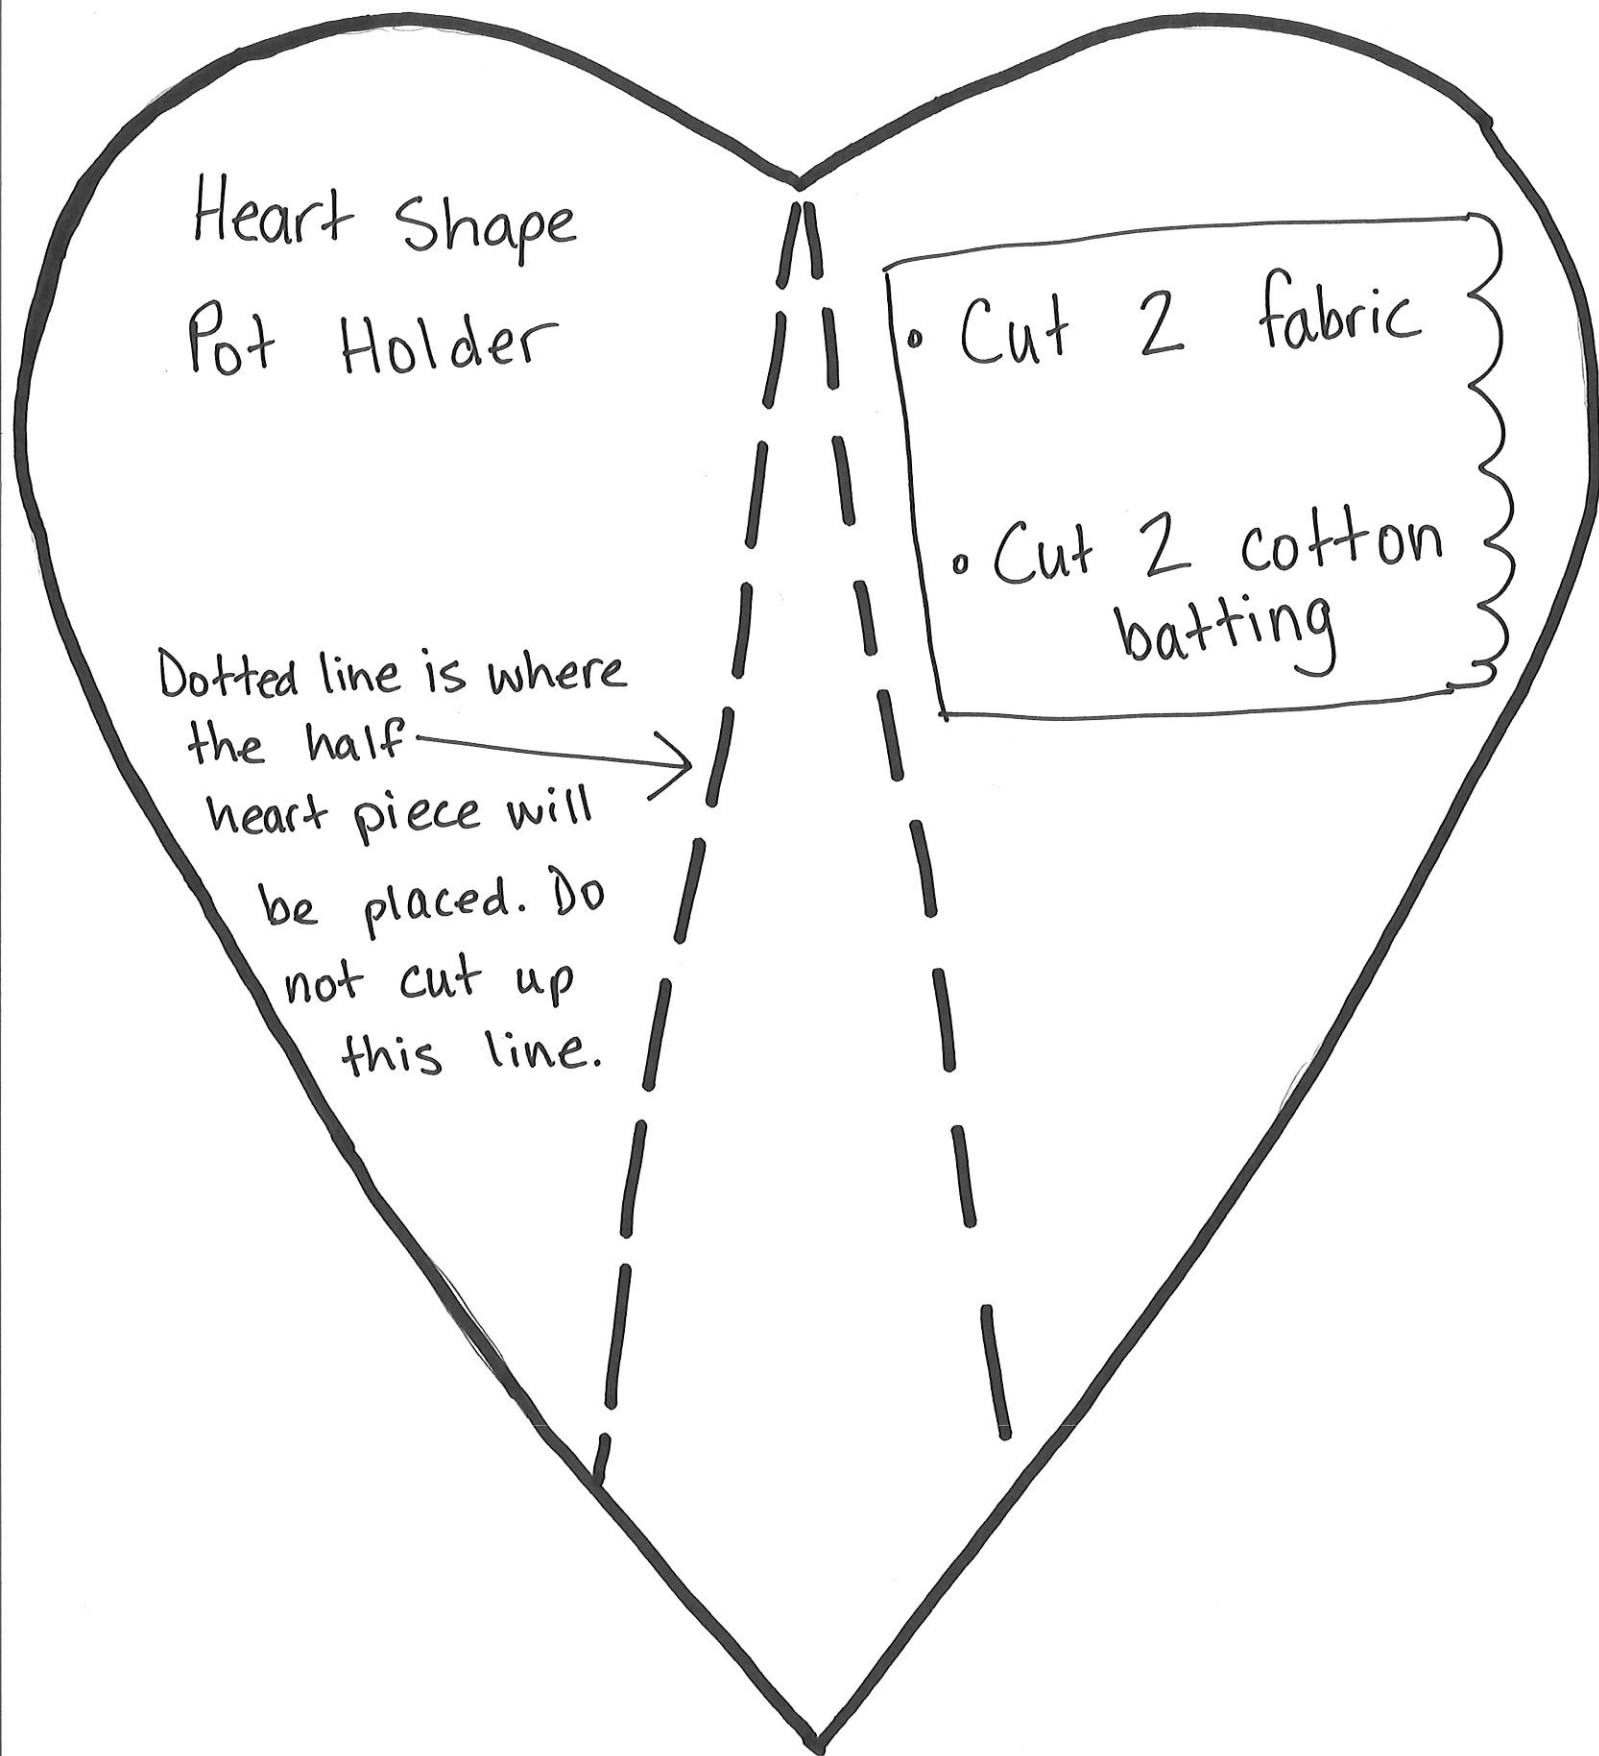 Heart Shape
Pot Holder
• Cut 2 fabric
• Cut 2 cotton
batting
Dotted line is where
the half
heart piece will
be placed. Do
not cut up
this line.